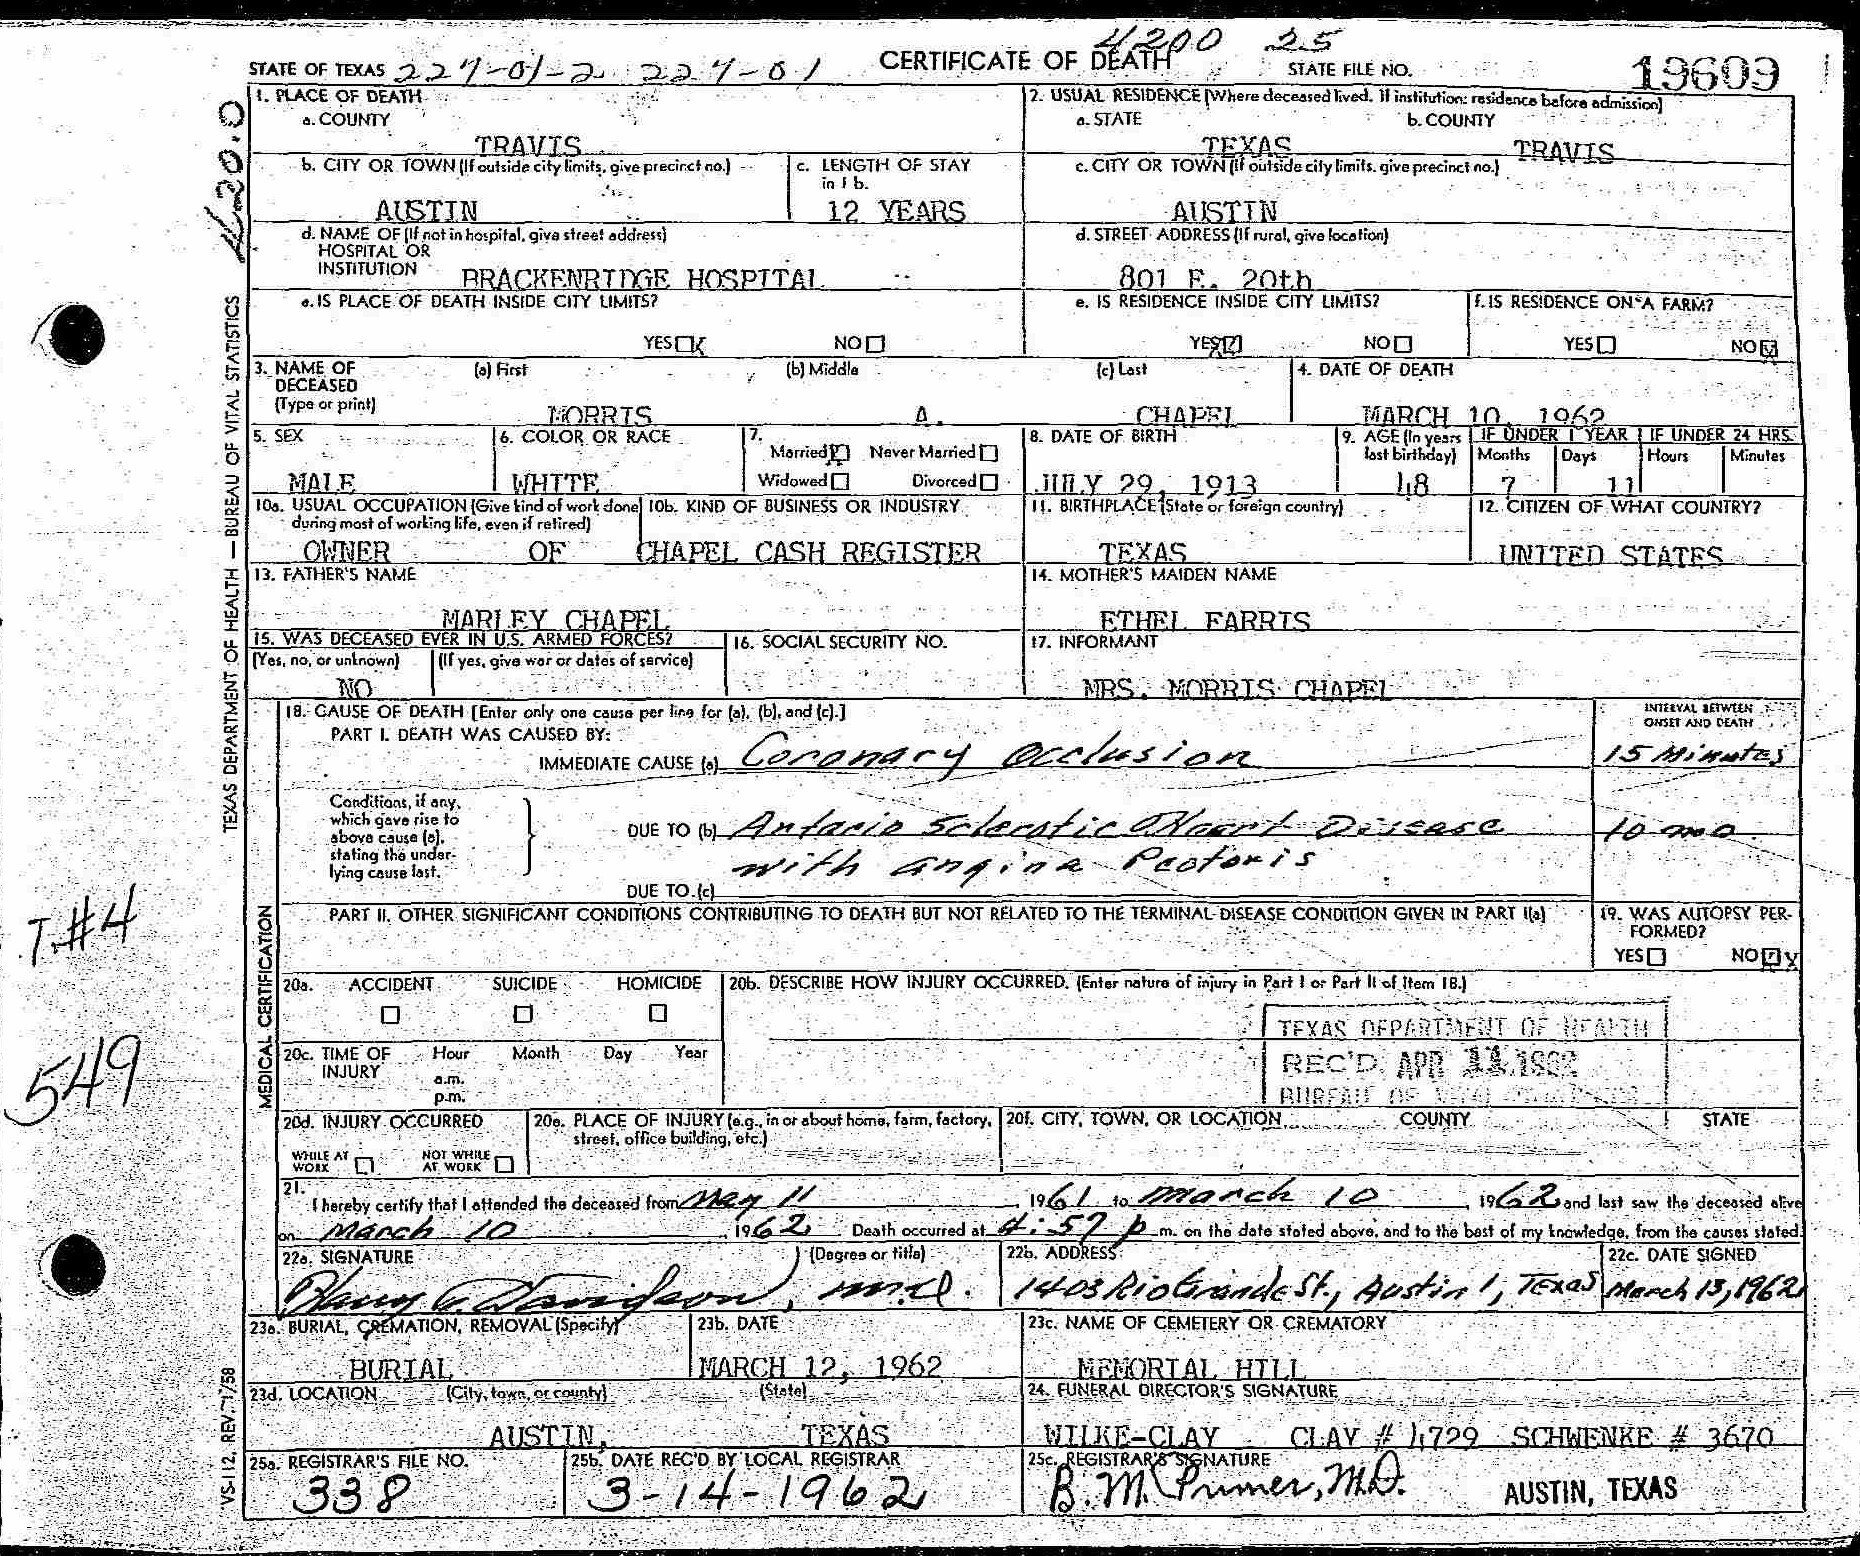 4200 25
STATE OF TEXAS 227-01-2 227-01 CERTIFICATE OF DEATH STATE FILE NO. 19609
1. PLACE OF DEATH
a. COUNTY
TRAVIS
2. USUAL RESIDENCE (Where deceased lived. If institution: residence before admission)
a. STATE b. COUNTY
TEXAS TRAVIS
b. CITY OR TOWN (If outside city limits, give precinct no.)
AUSTIN
c. LENGTH OF STAY in 1 b.
12 YEARS
c. CITY OR TOWN (If outside city limits, give precinct no.)
AUSTIN
d. NAME OF (If not in hospital, give street address)
HOSPITAL OR
INSTITUTION BRACKENRIDGE HOSPITAL
d. STREET ADDRESS (If rural, give location)
801 E. 20th
e. IS PLACE OF DEATH INSIDE CITY LIMITS?
YES X NO
e. IS RESIDENCE INSIDE CITY LIMITS?
YES NO
f. IS RESIDENCE ON A FARM?
YES NO
3. NAME OF (a) First (b) Middle (c) Last
DECEASED
(Type or print)
MORRIS A. CHAPEL
4. DATE OF DEATH
MARCH 10, 1962
5. SEX
MALE
6. COLOR OR RACE
WHITE
7.
Married X Never Married
Widowed Divorced
8. DATE OF BIRTH
JULY 29, 1913
9. AGE (In years last birthday)
48
IF UNDER 1 YEAR IF UNDER 24 HRS.
Months Days Hours Minutes
7 11
10a. USUAL OCCUPATION (Give kind of work done
during most of working life, even if retired)
10b. KIND OF BUSINESS OR INDUSTRY
OWNER OF CHAPEL CASH REGISTER
11. BIRTHPLACE (State or foreign country)
TEXAS
12. CITIZEN OF WHAT COUNTRY?
UNITED STATES
13. FATHER'S NAME
MARLEY CHAPEL
14. MOTHER'S MAIDEN NAME
ETHEL FARRIS
15. WAS DECEASED EVER IN U.S. ARMED FORCES?
(Yes, no, or unknown) (If yes, give war or dates of service)
NO
16. SOCIAL SECURITY NO.
17. INFORMANT
MRS. MORRIS CHAPEL
18. CAUSE OF DEATH [Enter only one cause per line for (a), (b), and (c).]
INTERVAL BETWEEN
ONSET AND DEATH
PART I. DEATH WAS CAUSED BY:
IMMEDIATE CAUSE (a) Coronary Occlusion 15 Minutes
Conditions, if any,
which gave rise to
above cause (a),
stating the under-
lying cause last.
DUE TO (b) Antario Sclerotic Heart Disease 10 mo.
with angina Pectoris
DUE TO (c)
PART II. OTHER SIGNIFICANT CONDITIONS CONTRIBUTING TO DEATH BUT NOT RELATED TO THE TERMINAL DISEASE CONDITION GIVEN IN PART I(a)
19. WAS AUTOPSY PER-
FORMED?
YES NO X
20a. ACCIDENT SUICIDE HOMICIDE
20b. DESCRIBE HOW INJURY OCCURRED. (Enter nature of injury in Part I or Part II of Item 18.)
TEXAS DEPARTMENT OF HEALTH
REC'D APR 11 1962
BUREAU OF
20c. TIME OF INJURY Hour Month Day Year
a.m.
p.m.
20d. INJURY OCCURRED
WHILE AT WORK NOT WHILE AT WORK
20e. PLACE OF INJURY (e.g., in or about home, farm, factory,
street, office building, etc.)
20f. CITY, TOWN, OR LOCATION COUNTY STATE
21.
I hereby certify that I attended the deceased from May 11, 1961 to March 10, 1962 and last saw the deceased alive
on March 10, 1962 Death occurred at 4:57 p m. on the date stated above, and to the best of my knowledge, from the causes stated.
22a. SIGNATURE (Degree or title)
Davidson, M.D.
22b. ADDRESS
1403 Rio Grande St., Austin 1, Texas
22c. DATE SIGNED
March 13, 1962
23a. BURIAL, CREMATION, REMOVAL (Specify)
BURIAL
23b. DATE
MARCH 12, 1962
23c. NAME OF CEMETERY OR CREMATORY
MEMORIAL HILL
23d. LOCATION (City, town, or county) (State)
AUSTIN, TEXAS
24. FUNERAL DIRECTOR'S SIGNATURE
WILKE-CLAY CLAY # 4729 SCHWENKE # 3670
25a. REGISTRAR'S FILE NO.
338
25b. DATE REC'D BY LOCAL REGISTRAR
3-14-1962
25c. REGISTRAR'S SIGNATURE
B. M. Primer, M.D. AUSTIN, TEXAS
420.0
TEXAS DEPARTMENT OF HEALTH — BUREAU OF VITAL STATISTICS
MEDICAL CERTIFICATION
VS-112, REV. 7/58
T.#4
549